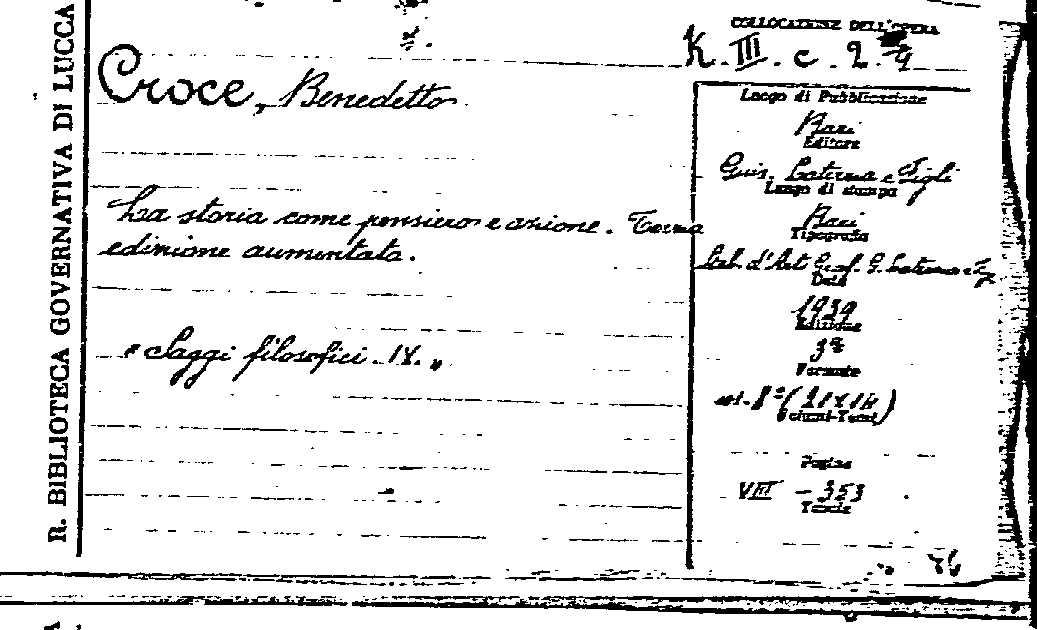 R. BIBLIOTECA GOVERNATIVA DI LUCCA
COLLOCAZIONE DELL'OPERA
K. III. c. 2
Croce, Benedetto
Luogo di Pubblicazione
Bari
Editore
Gius. Laterza e Figli
Luogo di stampa
La storia come pensiero e azione. Terza
edizione aumentata.
Bari
Tipografia
Stab. d'Art. Graf. G. Laterza e
Data
1939
Edizione
3ª
Formato
"Saggi filosofici IX."
in-8° (
Volumi-Tomi
Pagine
VIII - 353
Tavole